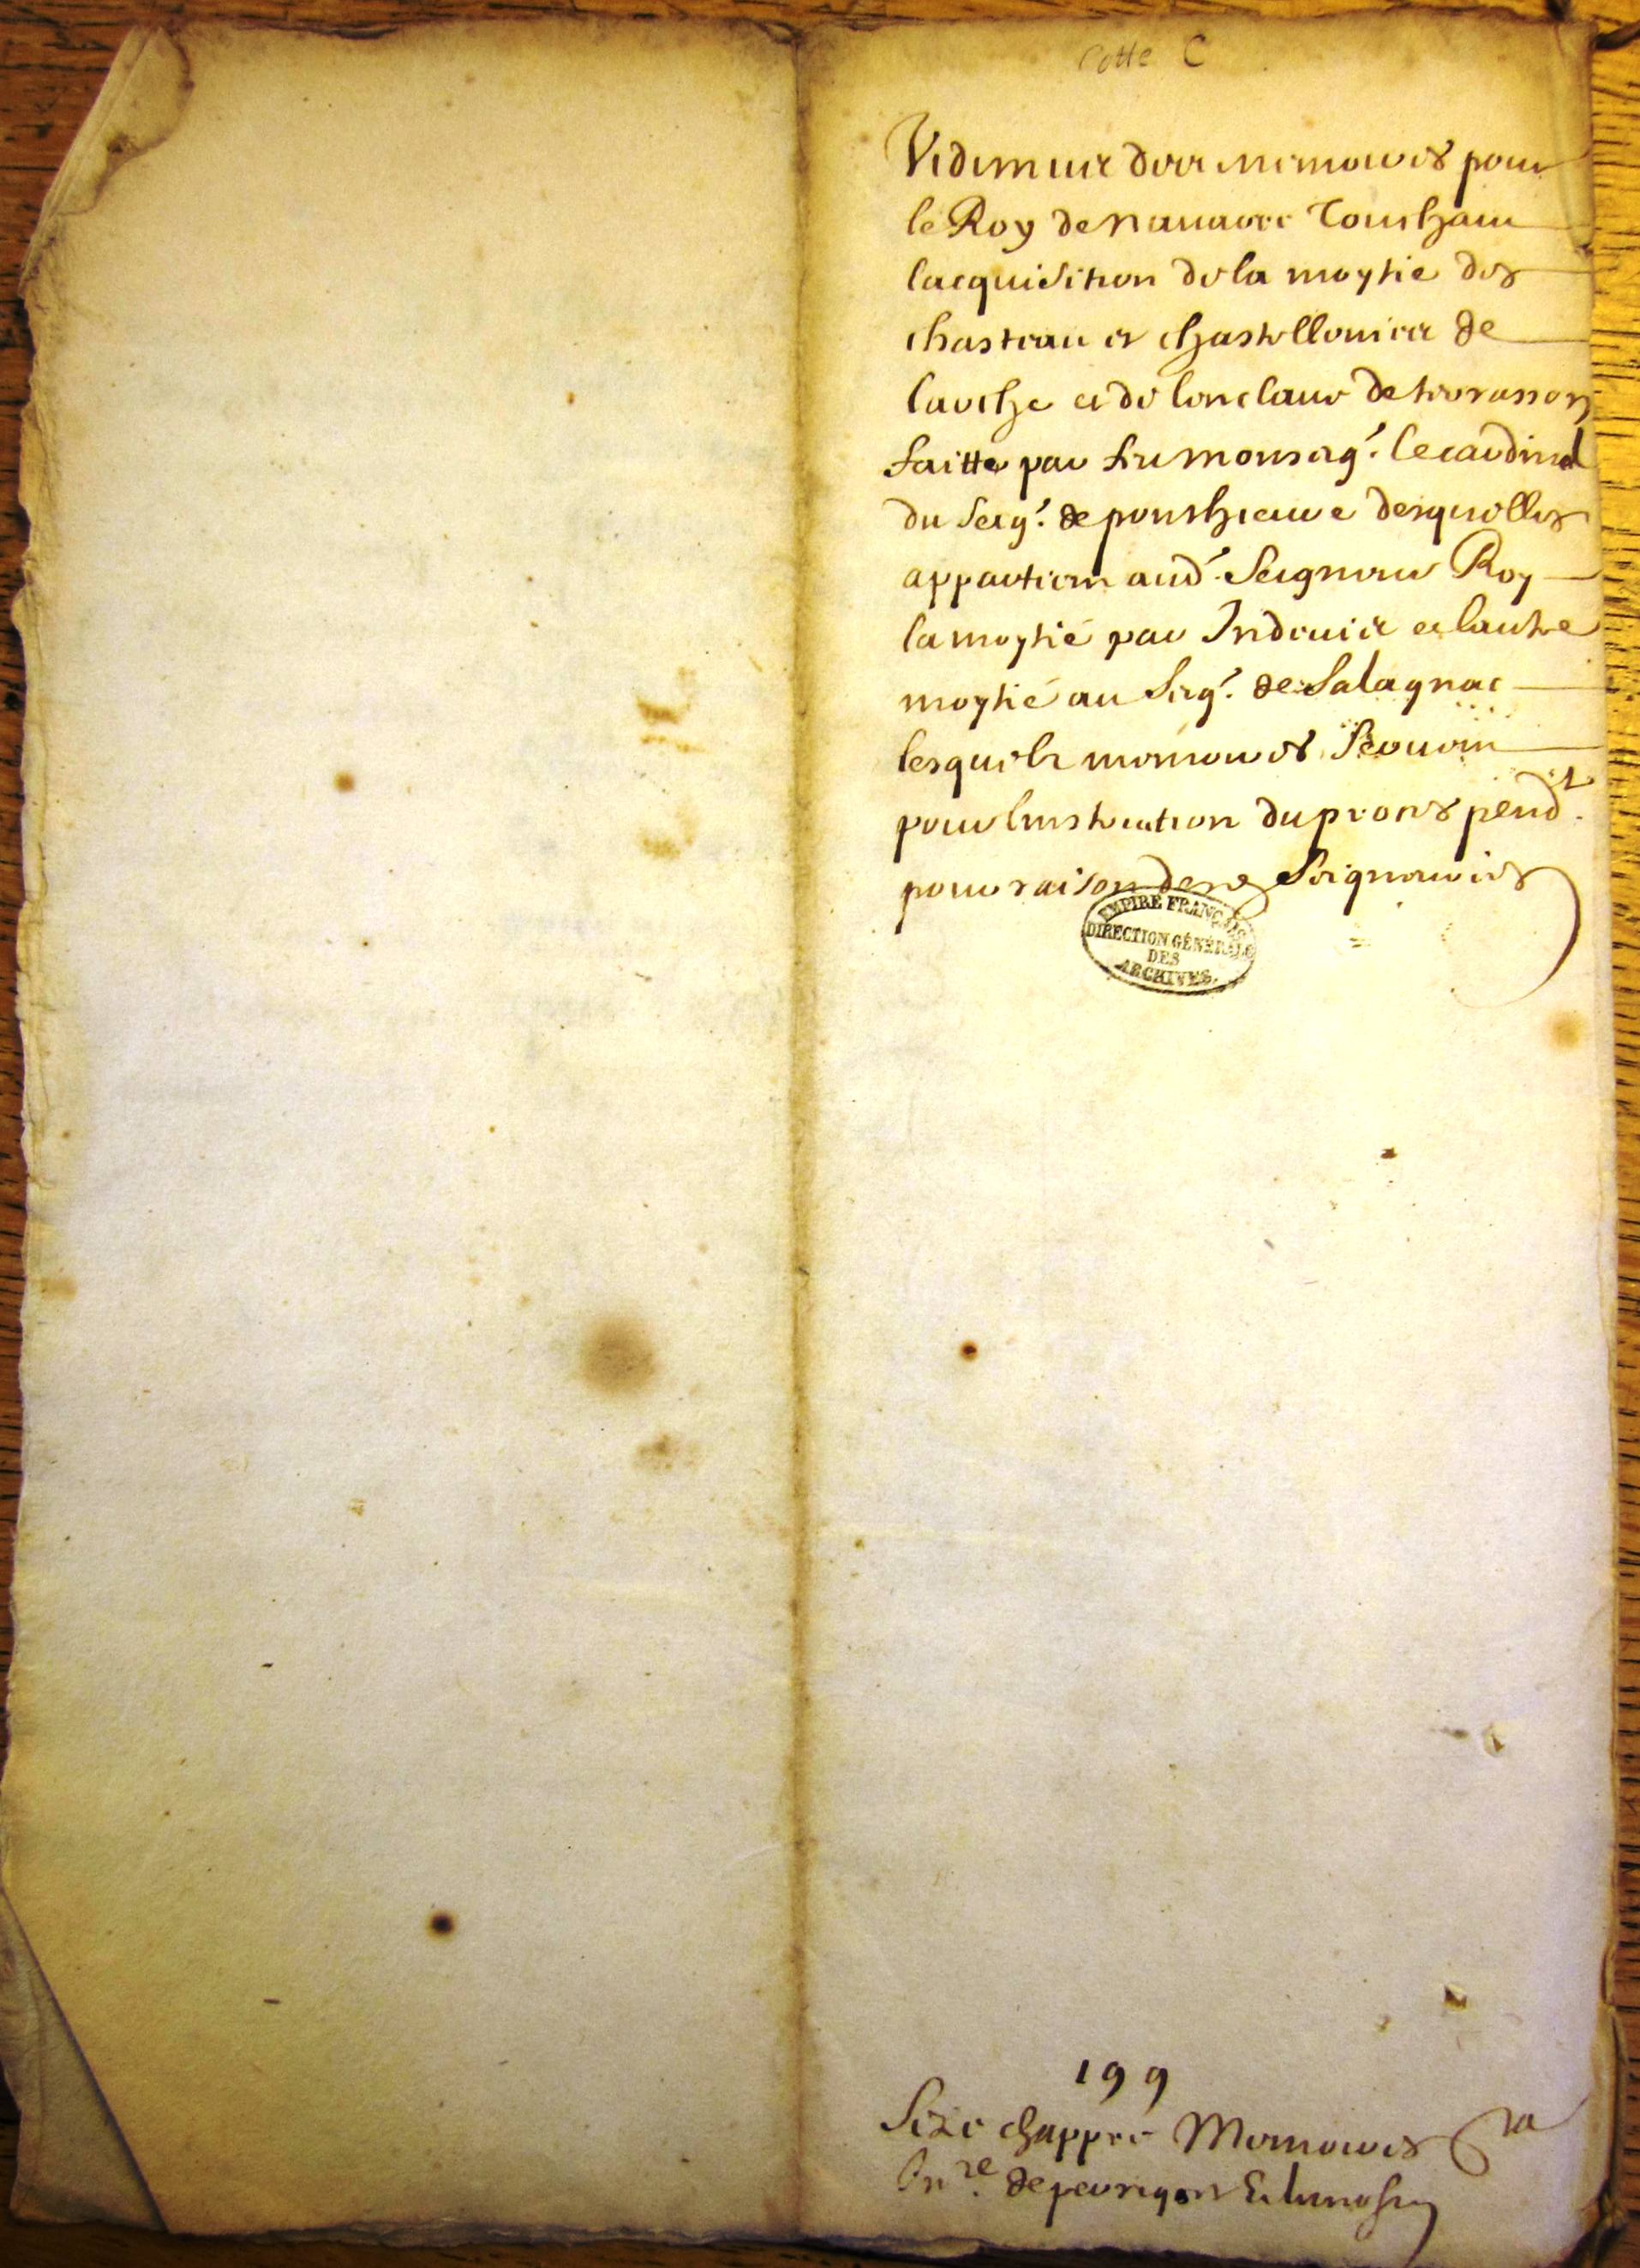 Cotte C
Vidimus des memoires pour
le Roy de nauarre touchant
lacquisition de la moytie des
chasteau et chastellenies de
larche et de lenclaue de terrasson
faitte par feu monseigr. le cardinal
du seigr. de ponthieure desquelles
appartient aud. Seigneur Roy
la moytié par Indiuis et lautre
moytié au Seigr. de Salagnac
lesquels memoires seruent
pour linstruction du proces pendt.
pour raison desd. Seigneuries
EMPIRE FRANÇAIS
DIRECTION GÉNÉRALE
DES
ARCHIVES.
199
Seze chappre Memoires
Inre. de perigort Et limosin